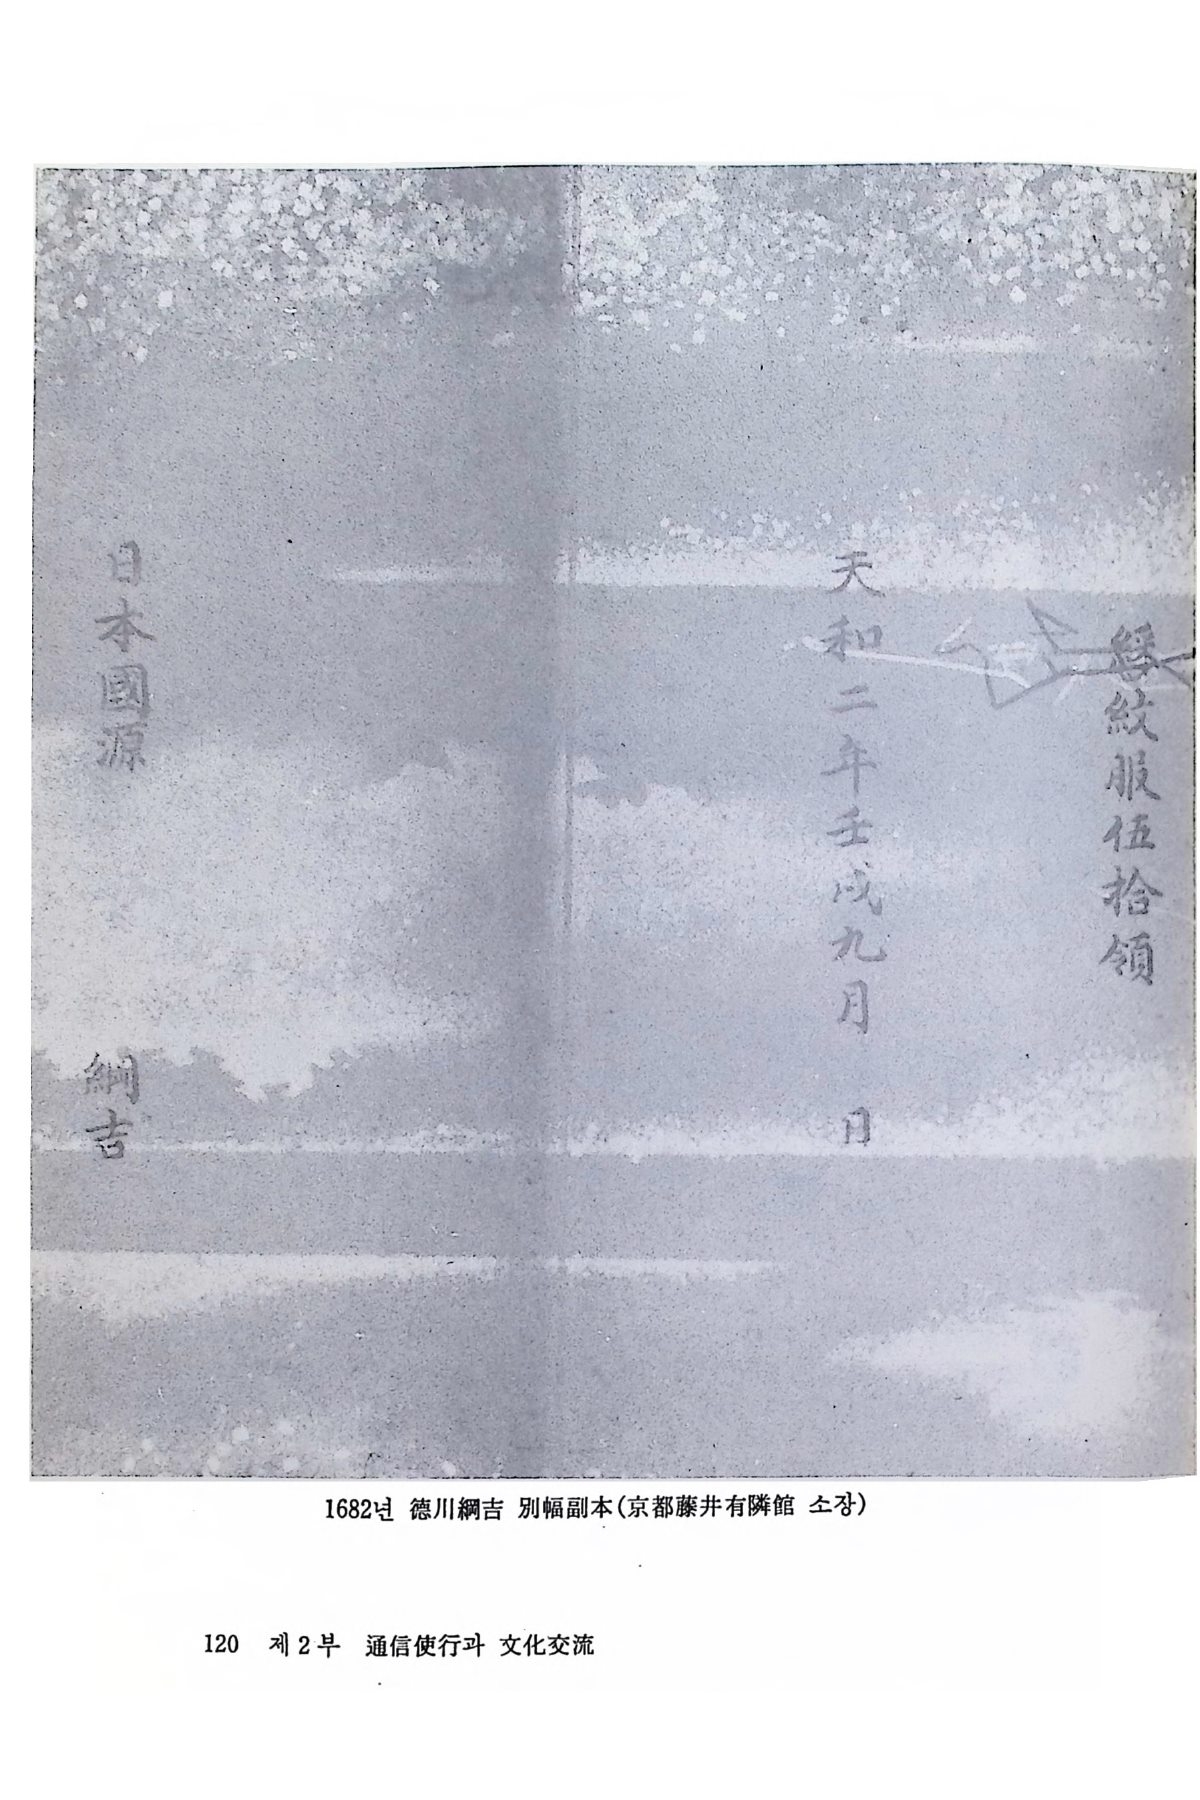 紋服伍拾領
天和二年壬戌九月 日
日本國源 綱吉
1682년 德川綱吉 別幅副本(京都藤井有隣館 소장)
120 제2부 通信使行과 文化交流